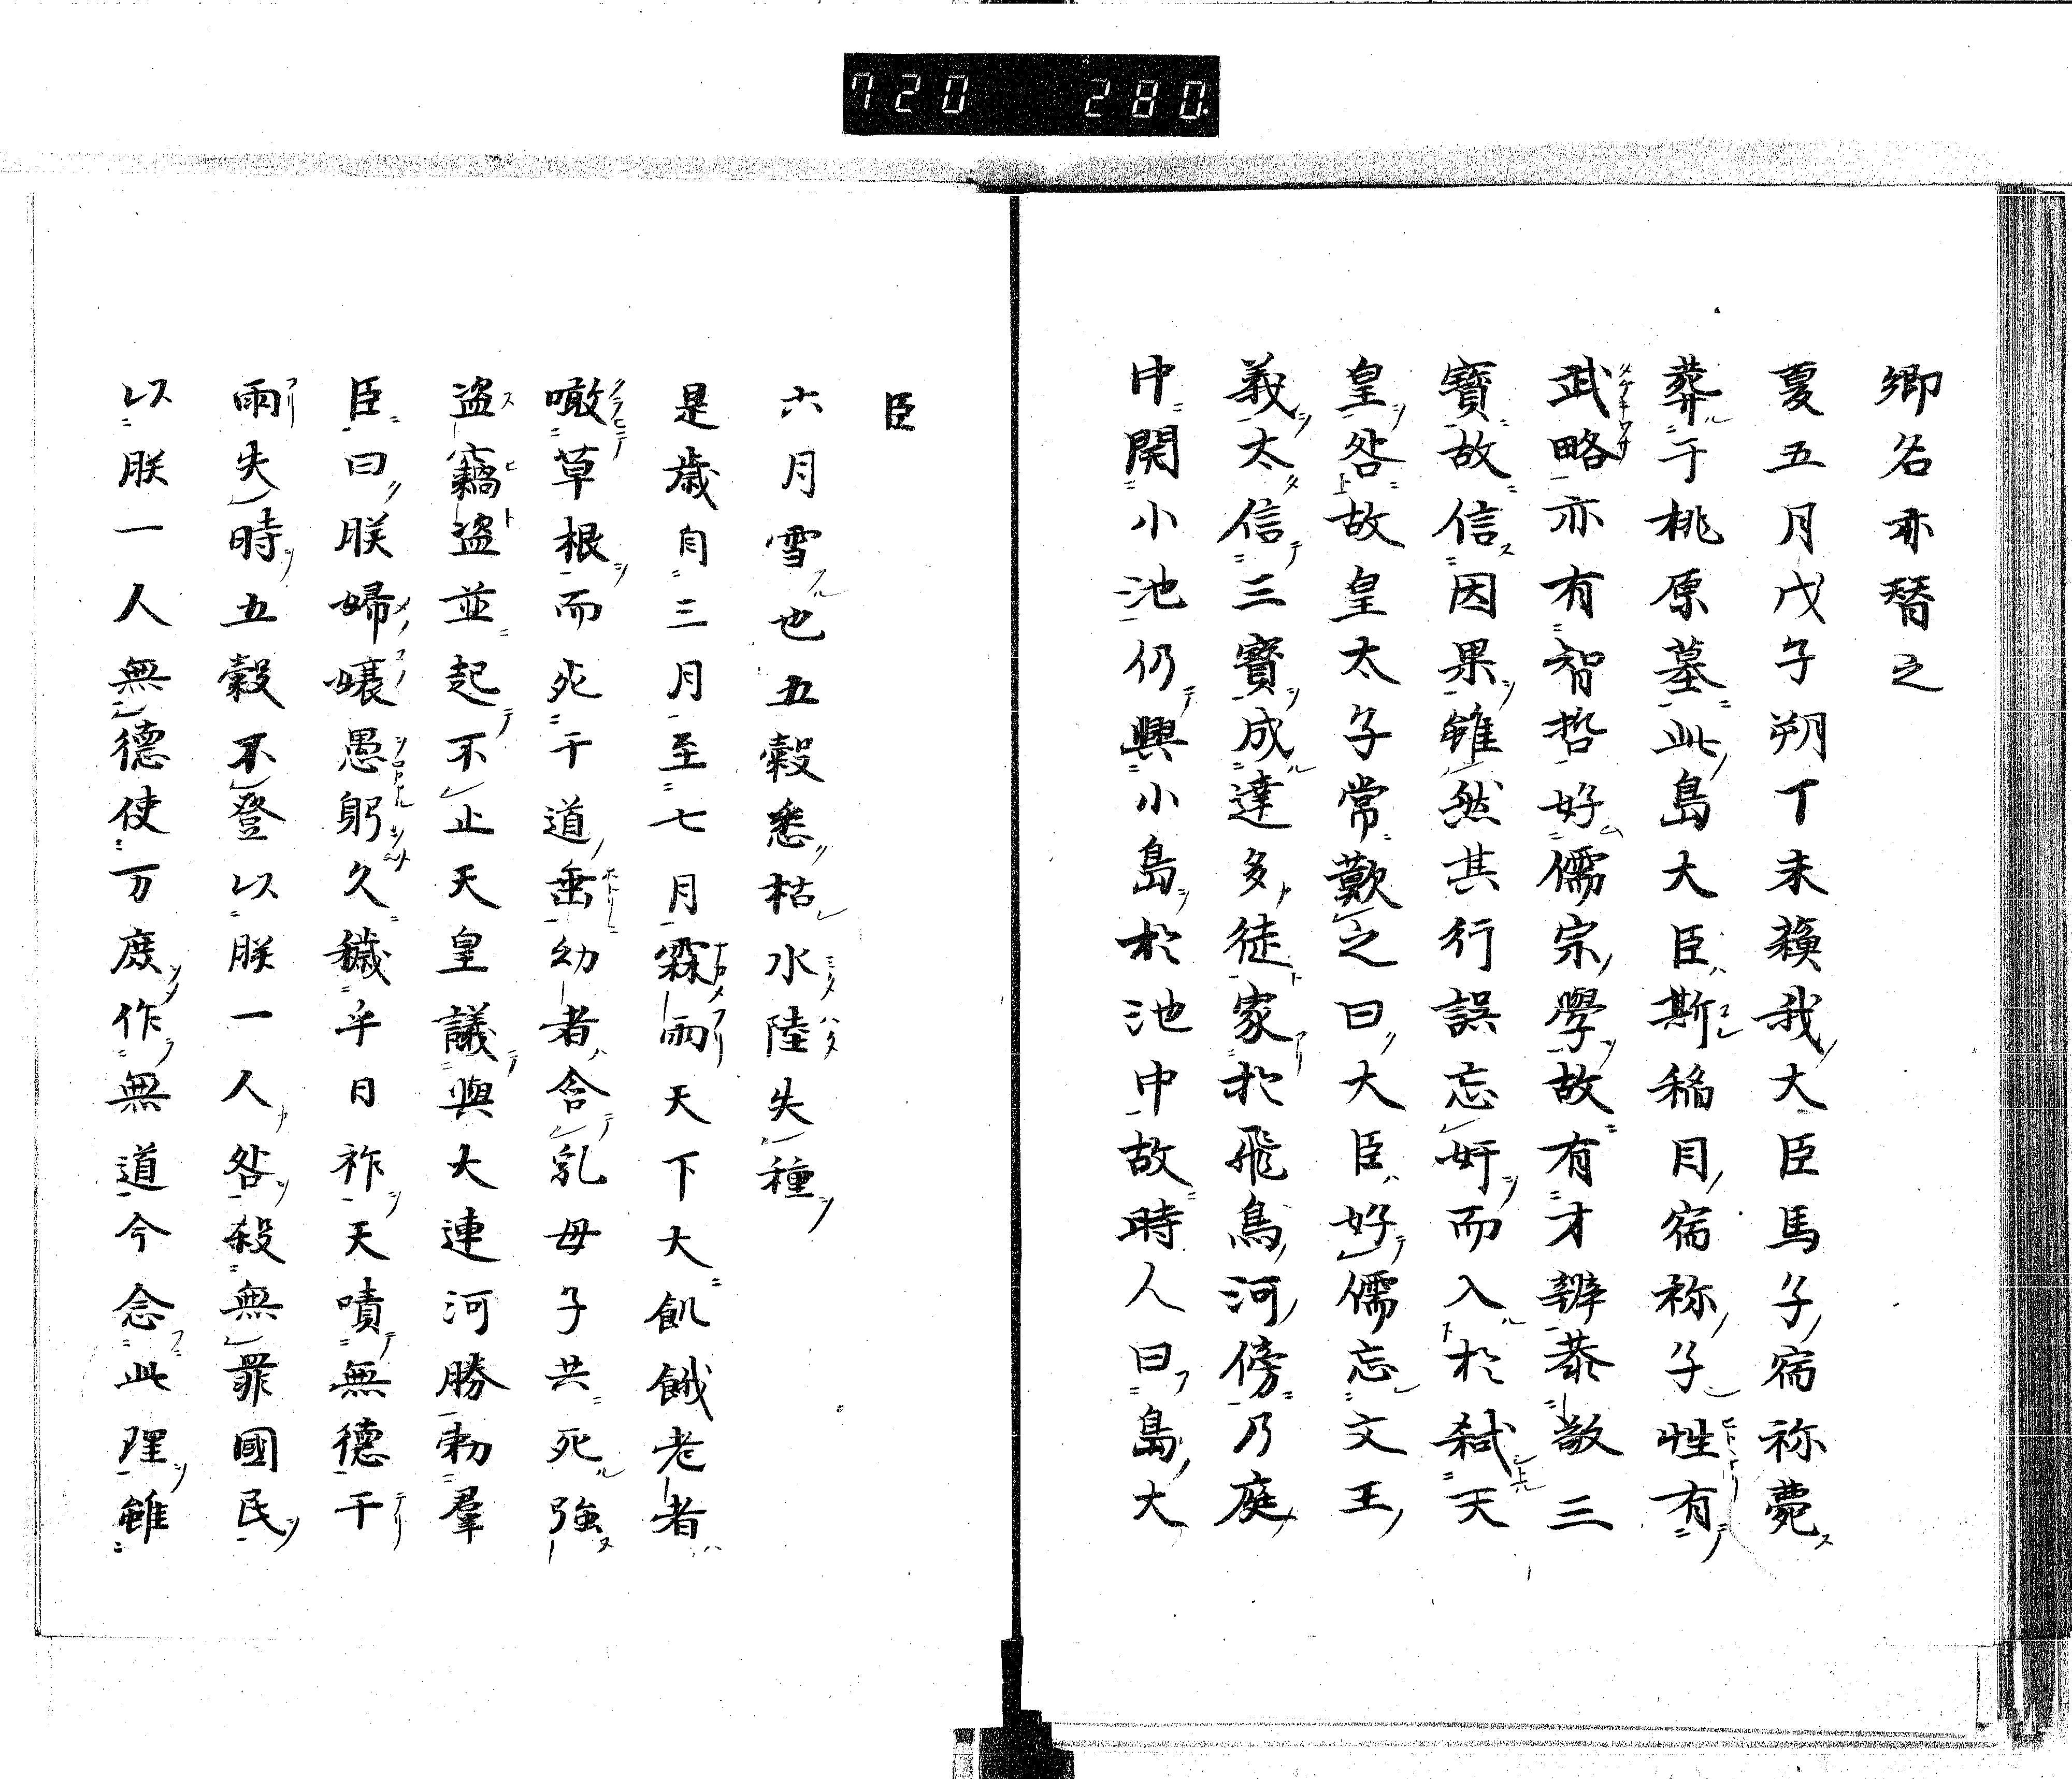 720 280
卿名亦替之
夏五月戊子朔丁未蘓我大臣馬子宿祢薨
葬于桃原墓此島大臣斯稲目宿祢子性有
武略亦有智哲好儒宗學故有才辨恭敬三
寳故信因果雖然其行誤忘奸而入於弑天
皇咎故皇太子常歎之曰大臣好儒忘文王
義太信三寳成達多徒家於飛鳥河傍乃庭
中開小池仍興小島於池中故時人曰島大
臣
六月雪也五穀悉枯水陸失種
是歳自三月至七月霖雨天下大飢餓老者
噉草根而死于道垂幼者含乳母子共死強
盗竊盗並起不止天皇議與大連河勝勅羣
臣曰朕婦嬢愚躬久穢乎日祚天嘖無徳干
雨失時五穀不登以朕一人咎殺無罪國民
以朕一人無徳使万庶作無道今念此理雖